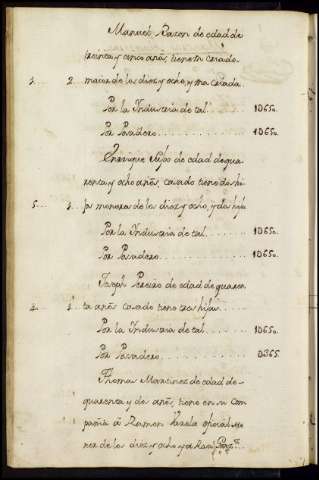 Manuel Razon de edad de
treinta y cinco añs, tiene un criado
3... 2. maior de los diez y ocho, y una criada
Por la Industria de tal... 1065..
Por Panadero... 1065..
Enrrique Seijo de edad de qua-
renta y ocho añs, casado tiene dos hi-
5... 1. jos menores de los diez y ocho, y dos hijas
Por la Industria de tal... 1065..
Por Panadero... 1065..
Joseph Pereiro de edad de quaren
2... 1. ta añs casado tiene tres hijas
Por la Industria de tal... 1065..
Por Panadero... 0365
Thomas Martinez de edad de
quarenta y de añs, tiene en su com
pañia à Ramon Varela oficial me
nor de los diez y ocho y a